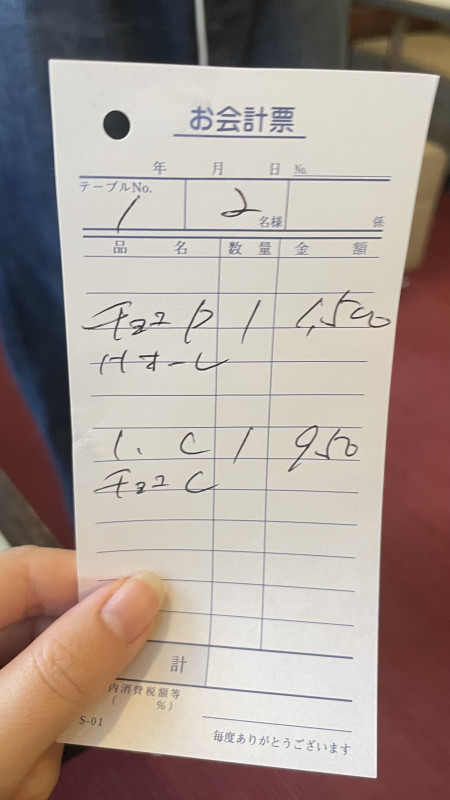 お会計票
年 月 日 No.
テーブルNo. 1 2 名様 係
品 名 数 量 金 額
チョコ P 1 1,500
1. C 1 950
チョコ C
計
内消費税額等
( %)
S-01
毎度ありがとうございます